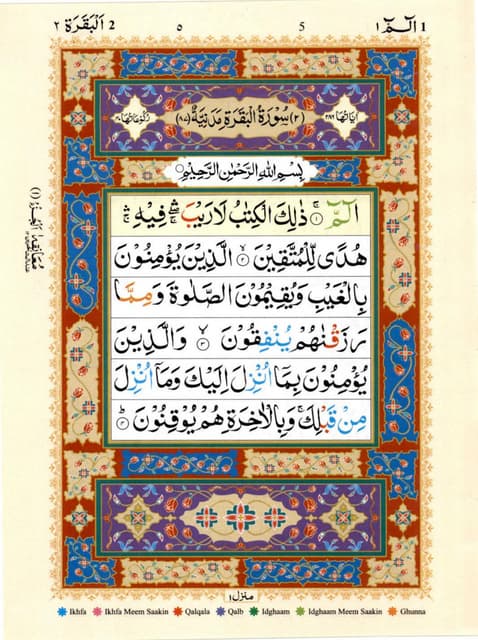 البقرة 2 ٢
٥
5
الٓمّٓ 1 ١
اٰيَاتُهَا ٢٨٦
(٢) سُوْرَةُ الْبَقَرَةِ مَدَنِيَّةٌ (٨٧)
رُكُوْعَاتُهَا ٤٠
بِسْمِ اللّٰهِ الرَّحْمٰنِ الرَّحِيْمِ
الٓمّٓ ۚ﴿١﴾ ذٰلِكَ الْكِتٰبُ لَا رَيْبَ ۛۖۚ فِيْهِ ۛۚ
هُدًى لِّلْمُتَّقِيْنَ ۙ﴿٢﴾ الَّذِيْنَ يُؤْمِنُوْنَ
بِالْغَيْبِ وَيُقِيْمُوْنَ الصَّلٰوةَ وَمِمَّا
رَزَقْنٰهُمْ يُنْفِقُوْنَ ۙ﴿٣﴾ وَالَّذِيْنَ
يُؤْمِنُوْنَ بِمَآ اُنْزِلَ اِلَيْكَ وَمَآ اُنْزِلَ
مِنْ قَبْلِكَ ۚ وَبِالْاٰخِرَةِ هُمْ يُوْقِنُوْنَ ؕ﴿٤﴾
منزل ١
Ikhfa
Ikhfa Meem Saakin
Qalqala
Qalb
Idghaam
Idghaam Meem Saakin
Ghunna